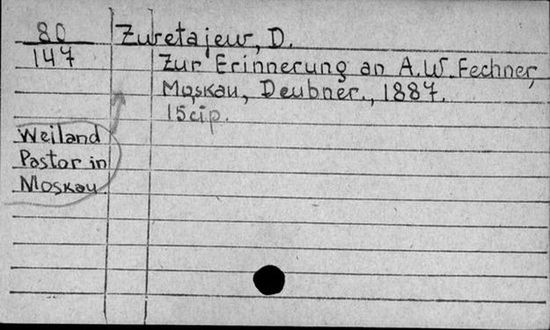 80
147
Zwetajew, D.
Zur Erinnerung an A.W. Fechner,
Moskau, Deubner., 1887.
15 стр.
Weiland
Pastor in
Moskau